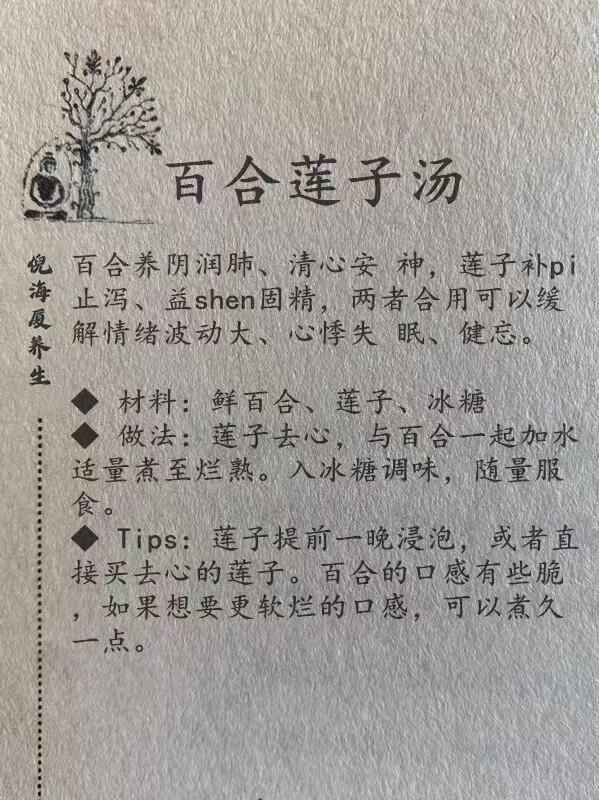 百合莲子汤
倪海厦养生
百合养阴润肺、清心安 神，莲子补pi
止泻、益shen固精，两者合用可以缓
解情绪波动大、心悸失 眠、健忘。
◆ 材料：鲜百合、莲子、冰糖
◆ 做法：莲子去心，与百合一起加水
适量煮至烂熟。入冰糖调味，随量服
食。
◆ Tips：莲子提前一晚浸泡，或者直
接买去心的莲子。百合的口感有些脆
，如果想要更软烂的口感，可以煮久
一点。